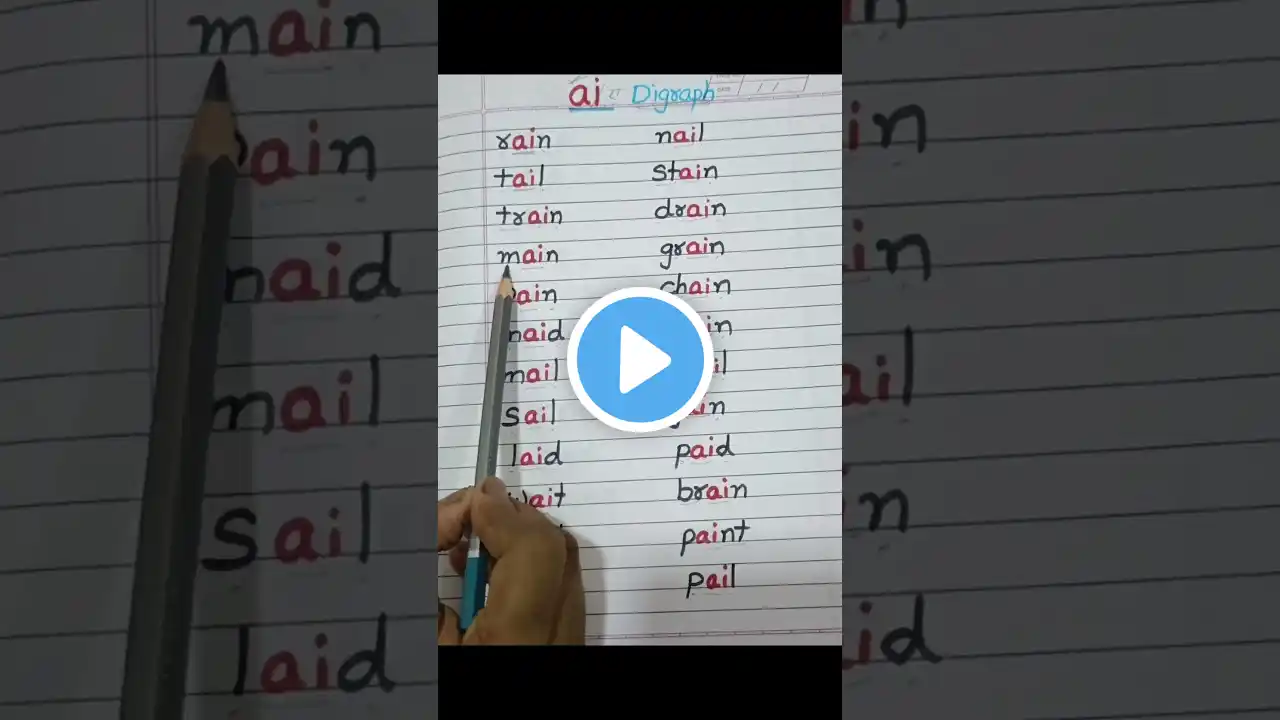 ai Digraph
rain
tail
train
main
maid
mail
sail
laid
wait
nail
stain
drain
grain
chain
paid
brain
paint
pail